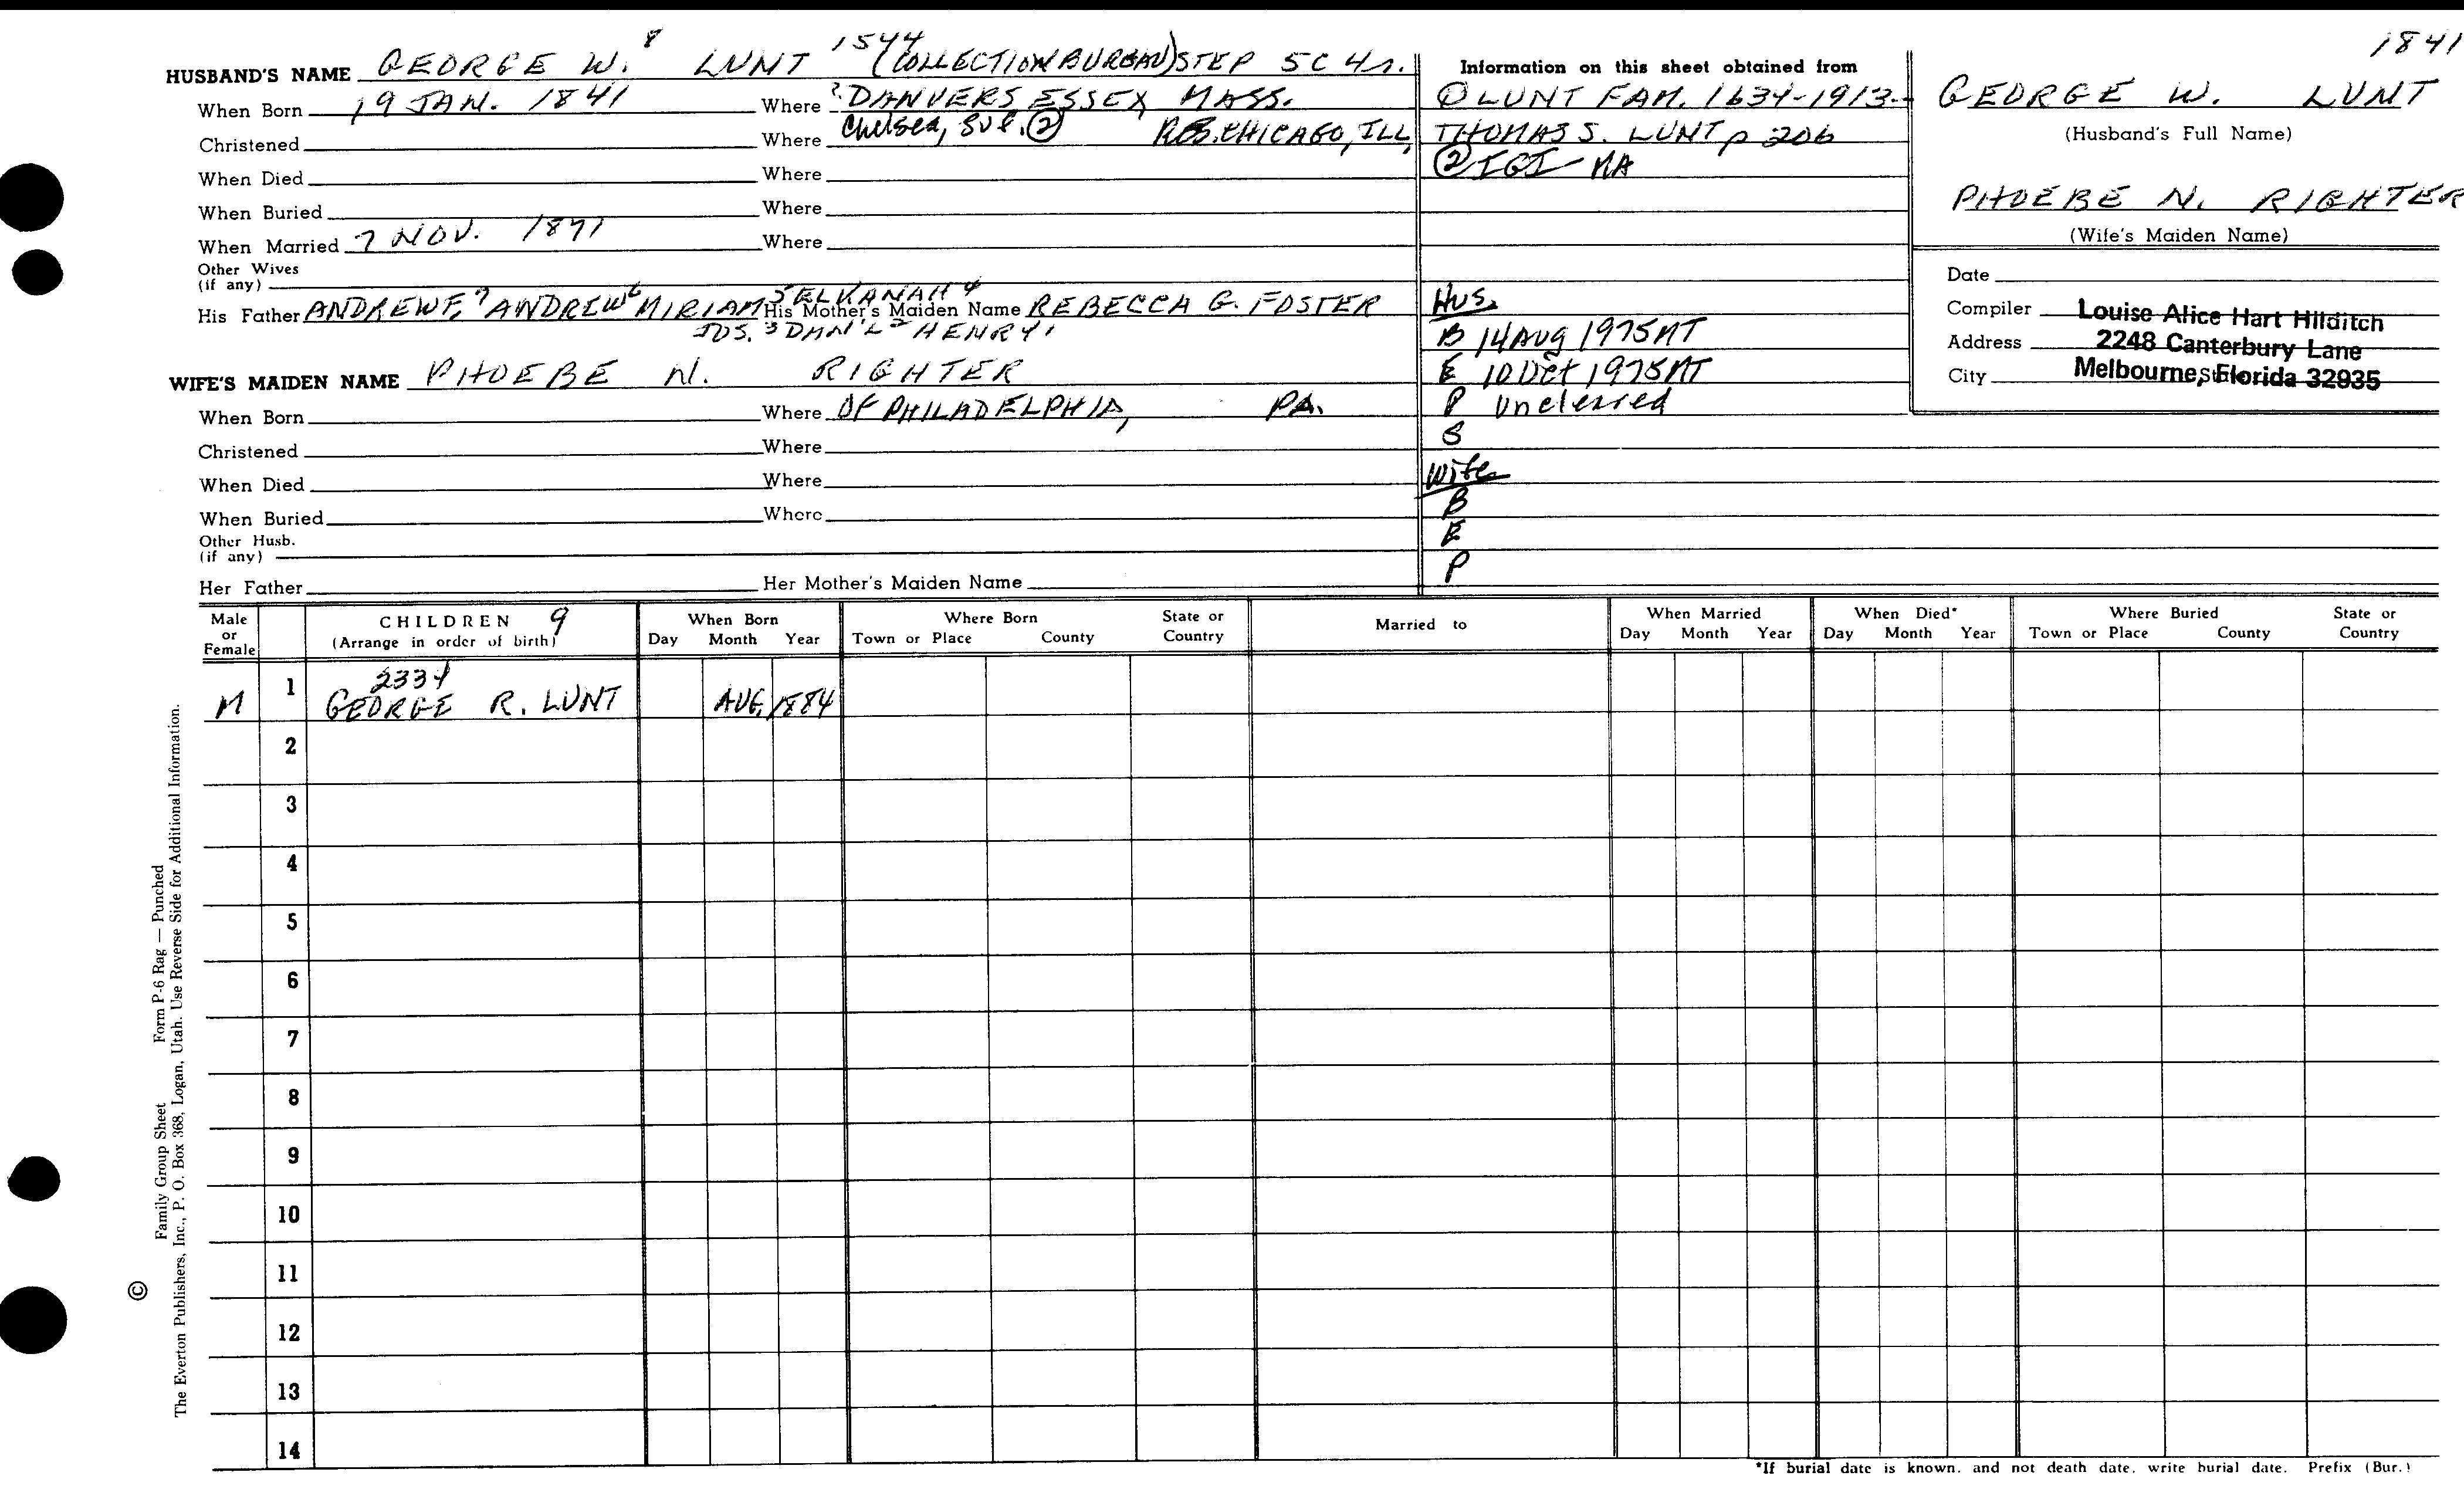 1841
HUSBAND'S NAME GEORGE W. 8 LUNT 1544 (COLLECTION BUREAU) STEP 5C 4r.
When Born 19 JAN. 1841 Where ? DANVERS ESSEX MASS.
Christened Where Chelsea, Suf. ② RES. CHICAGO, ILL,
When Died Where
When Buried Where
When Married 7 NOV. 1871 Where
Other Wives
(if any)
His Father ANDREW F. 7 ANDREW 6 MIRIAM 5 ELKANAH 4 His Mother's Maiden Name REBECCA G. FOSTER
JOS. 3 DAN'L 2 HENRY 1
WIFE'S MAIDEN NAME PHOEBE N. RIGHTER
When Born Where OF PHILADELPHIA, PA.
Christened Where
When Died Where
When Buried Where
Other Husb.
(if any)
Her Father Her Mother's Maiden Name
Information on this sheet obtained from
① LUNT FAM. 1634-1913-
THOMAS S. LUNT p 206
② IGI - MA
Hus.
B 14 Aug 1975 MT
E 10 Oct 1975 MT
P Uncleared
S
Wife
B
E
P
GEORGE W. LUNT
(Husband's Full Name)
PHOEBE N. RIGHTER
(Wife's Maiden Name)
Date
Compiler Louise Alice Hart Hilditch
Address 2248 Canterbury Lane
City Melbourne, Florida 32935
Male or Female CHILDREN 9 (Arrange in order of birth) When Born Day Month Year Where Born Town or Place County State or Country Married to When Married Day Month Year When Died* Day Month Year Where Buried Town or Place County State or Country
2334
M 1 GEORGE R. LUNT AUG. 1884
2
3
4
5
6
7
8
9
10
11
12
13
14
*If burial date is known, and not death date, write burial date. Prefix (Bur.)
Family Group Sheet Form P-6 Rag — Punched
© The Everton Publishers, Inc., P. O. Box 368, Logan, Utah. Use Reverse Side for Additional Information.